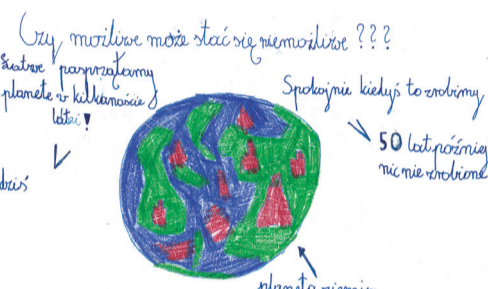 Czy możliwe może stać się niemożliwe ???
posprzątamy
planetę w kilkanaście
lat!
dziś
Spokojnie kiedyś to zrobimy
50 lat później
nic nie zrobione
planeta ziemia